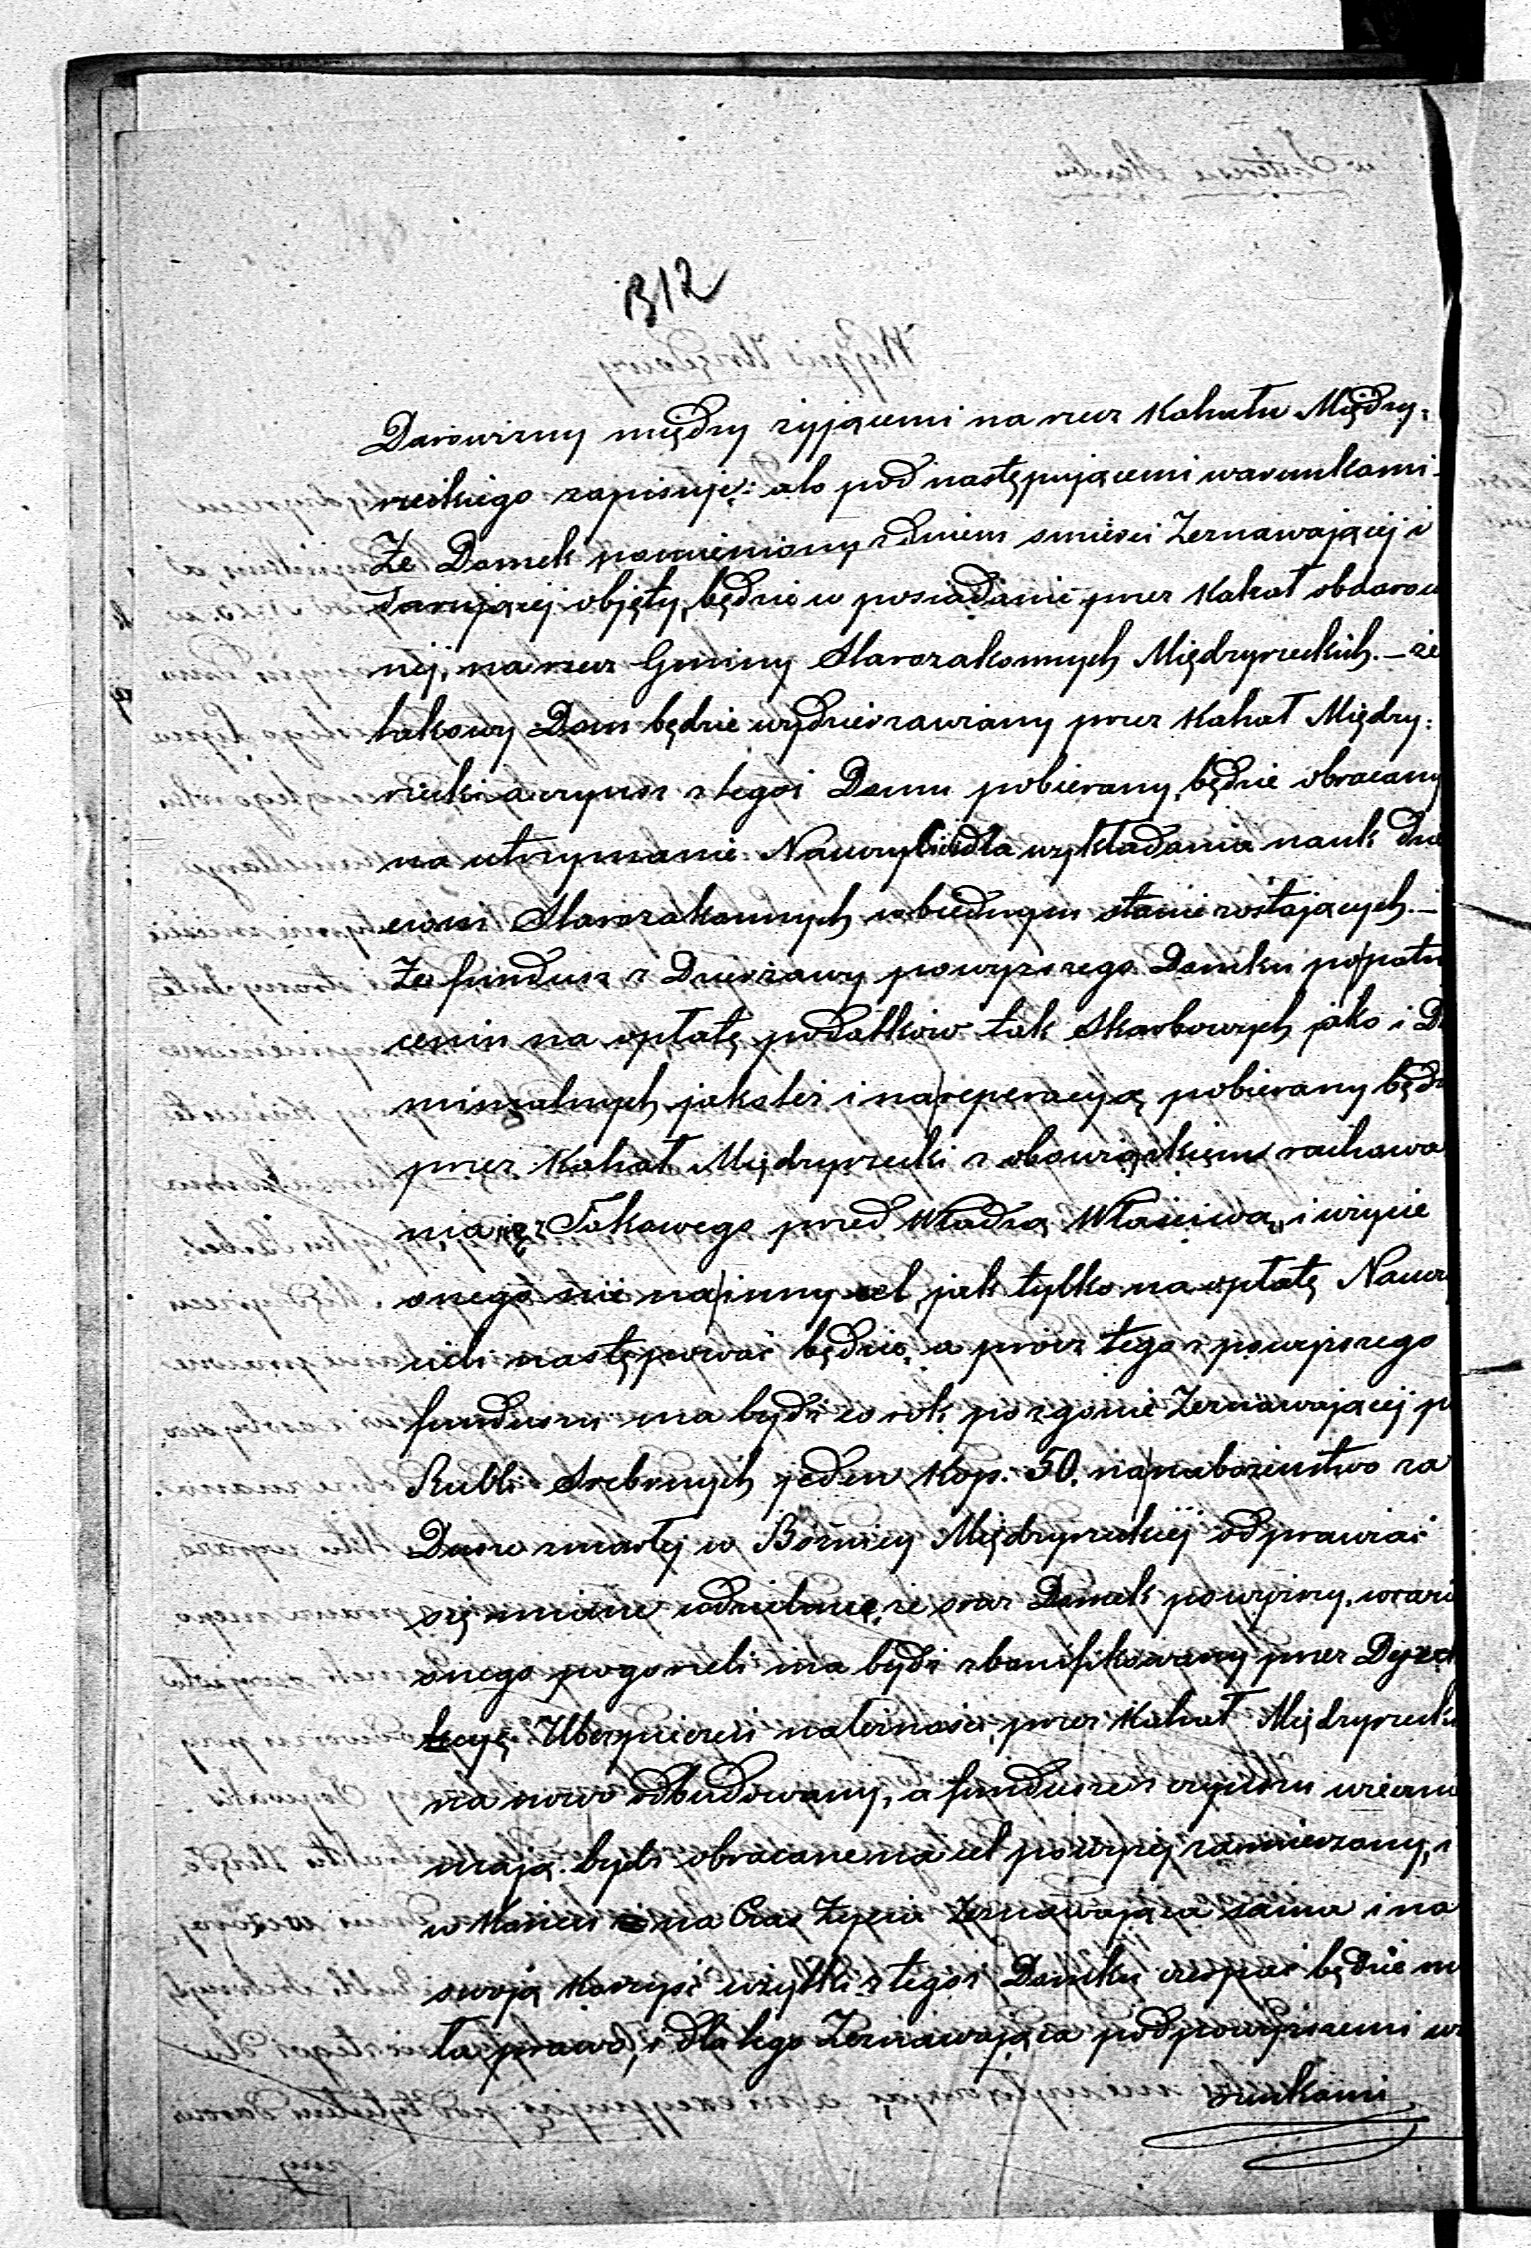 B12
Darowizny między żyjącemi na rzecz Kahału Między=
rzeckiego zapisuje: ato pod następującemi warunkami.
Że Domek pomieniony z dniem śmierci Zeznawającej i
darującej objęty, będzie w posiadanie przez Kahał obdarow
nej, na rzecz Gminy Starozakonnych Międzyrzeckich. – że
takowy Dom będzie wydzierzawiany przez Kahał Między=
rzecki a czynsz z tegoż Domu pobierany, będzie obracany
na utrzymanie Nauczycieli dla wykładania nauk dzie
ciom Starozakonnych w biednym stanie zostających. –
Że fundusz z Dzierżawy powyższego Domku po potrą
ceniu na opłatę podatków tak Skarbowych jako i Do
minialnych, jakoteż i na reperacyą pobierany będz
przez Kahał Międzyrzecki z obowiązkiem rachowa
nia się z Takowego przed Władzą Właściwą, i użycie
onego nie na inny cel, jak tylko na opłatę Nauczy
cieli następować będzie, a prócz tego z powyższego
funduszu ma bydź co rok po zgonie Zeznawającej po
Rubli Srebrnych jeden Kop. 50. na nabożeństwo za
Duszę zmarłej w Bożnicy Międzyrzeckiej odprawiać
się miane udzielane, że oraz Domek powyższy, w razie
onego pogorzeli ma bydź zbonifikowany przez Dyrek
tecyę Ubezpieczeń należności, przez Kahał Międzyrzecki
na nowo odbudowany, a fundusze z czynszu wzięcia
mają bydź obracane na cel powyżej zamierzony, i
w Końcu na Czas Życia Zeznawająca sama i na
swoją Korzyść użytki z tegoż Domku czerpać będzie mi
ła prawo, i dla tego Zeznawająca pod powyższemi wa
runkami